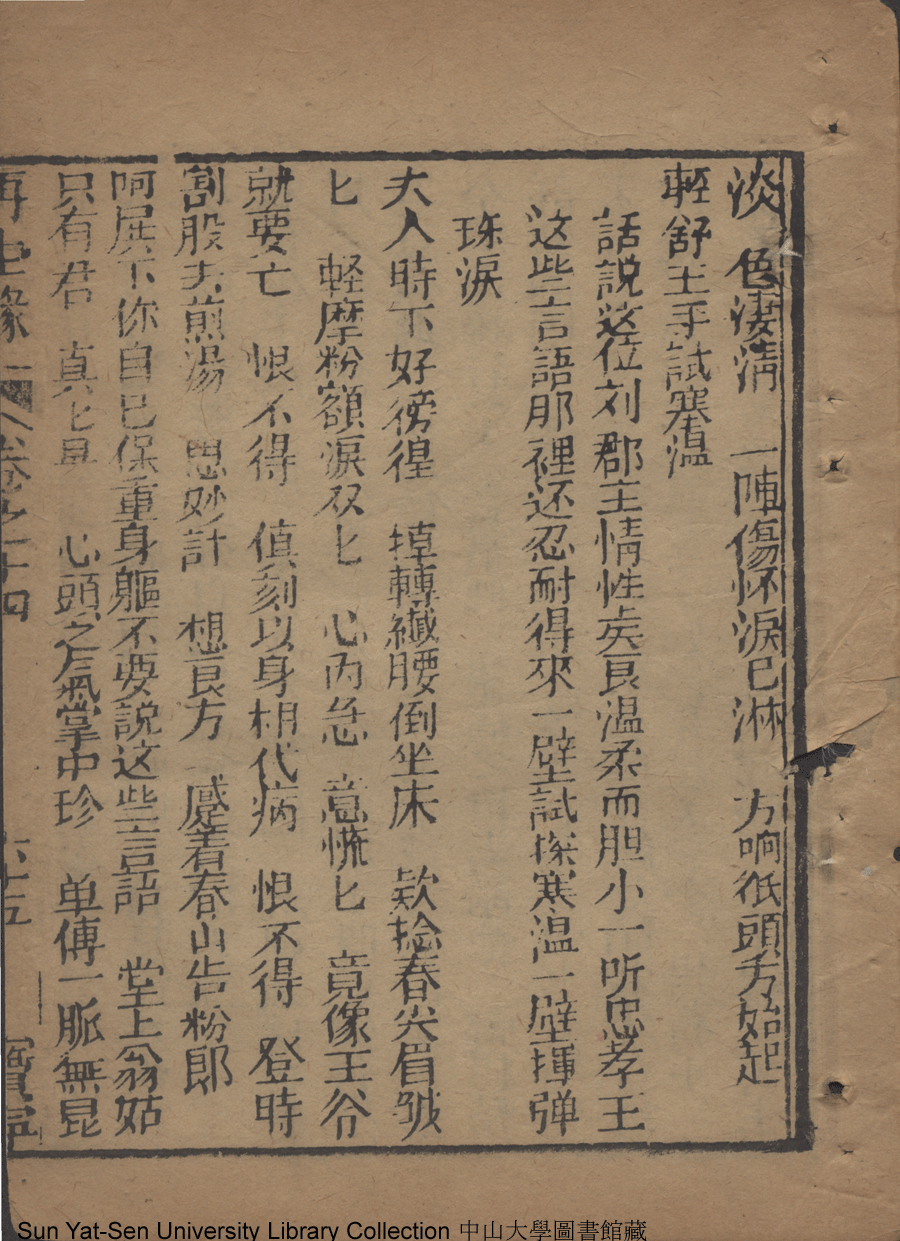 淡 色淒清 一陣傷怀淚已淋 方响低頭方始起
輕舒玉手試寒温
話說这位刘郡主情性矦良温柔而胆小一听忠孝王
这些言語那裡还忍耐得來一壁試探寒温一壁揮弹
珠淚
夫人時下好徬徨 掉轉纎腰倒坐床 欵捻春尖眉皱
匕 軽摩粉額淚双匕 心内急 意慌匕 竟像王爷
就要亡 恨不得 傾刻以身相代病 恨不得 登時
割股去煎湯 思妙計 想良方 蹙着春山告粉郎
呵展下你自已保重身軀不要說这些言語 堂上翁姑
只有君 真匕是 心頭之氣掌中珍 单傳一脈無昆
再生緣 卷之十四 六十五 寶寧
Sun Yat-Sen University Library Collection 中山大學圖書館藏